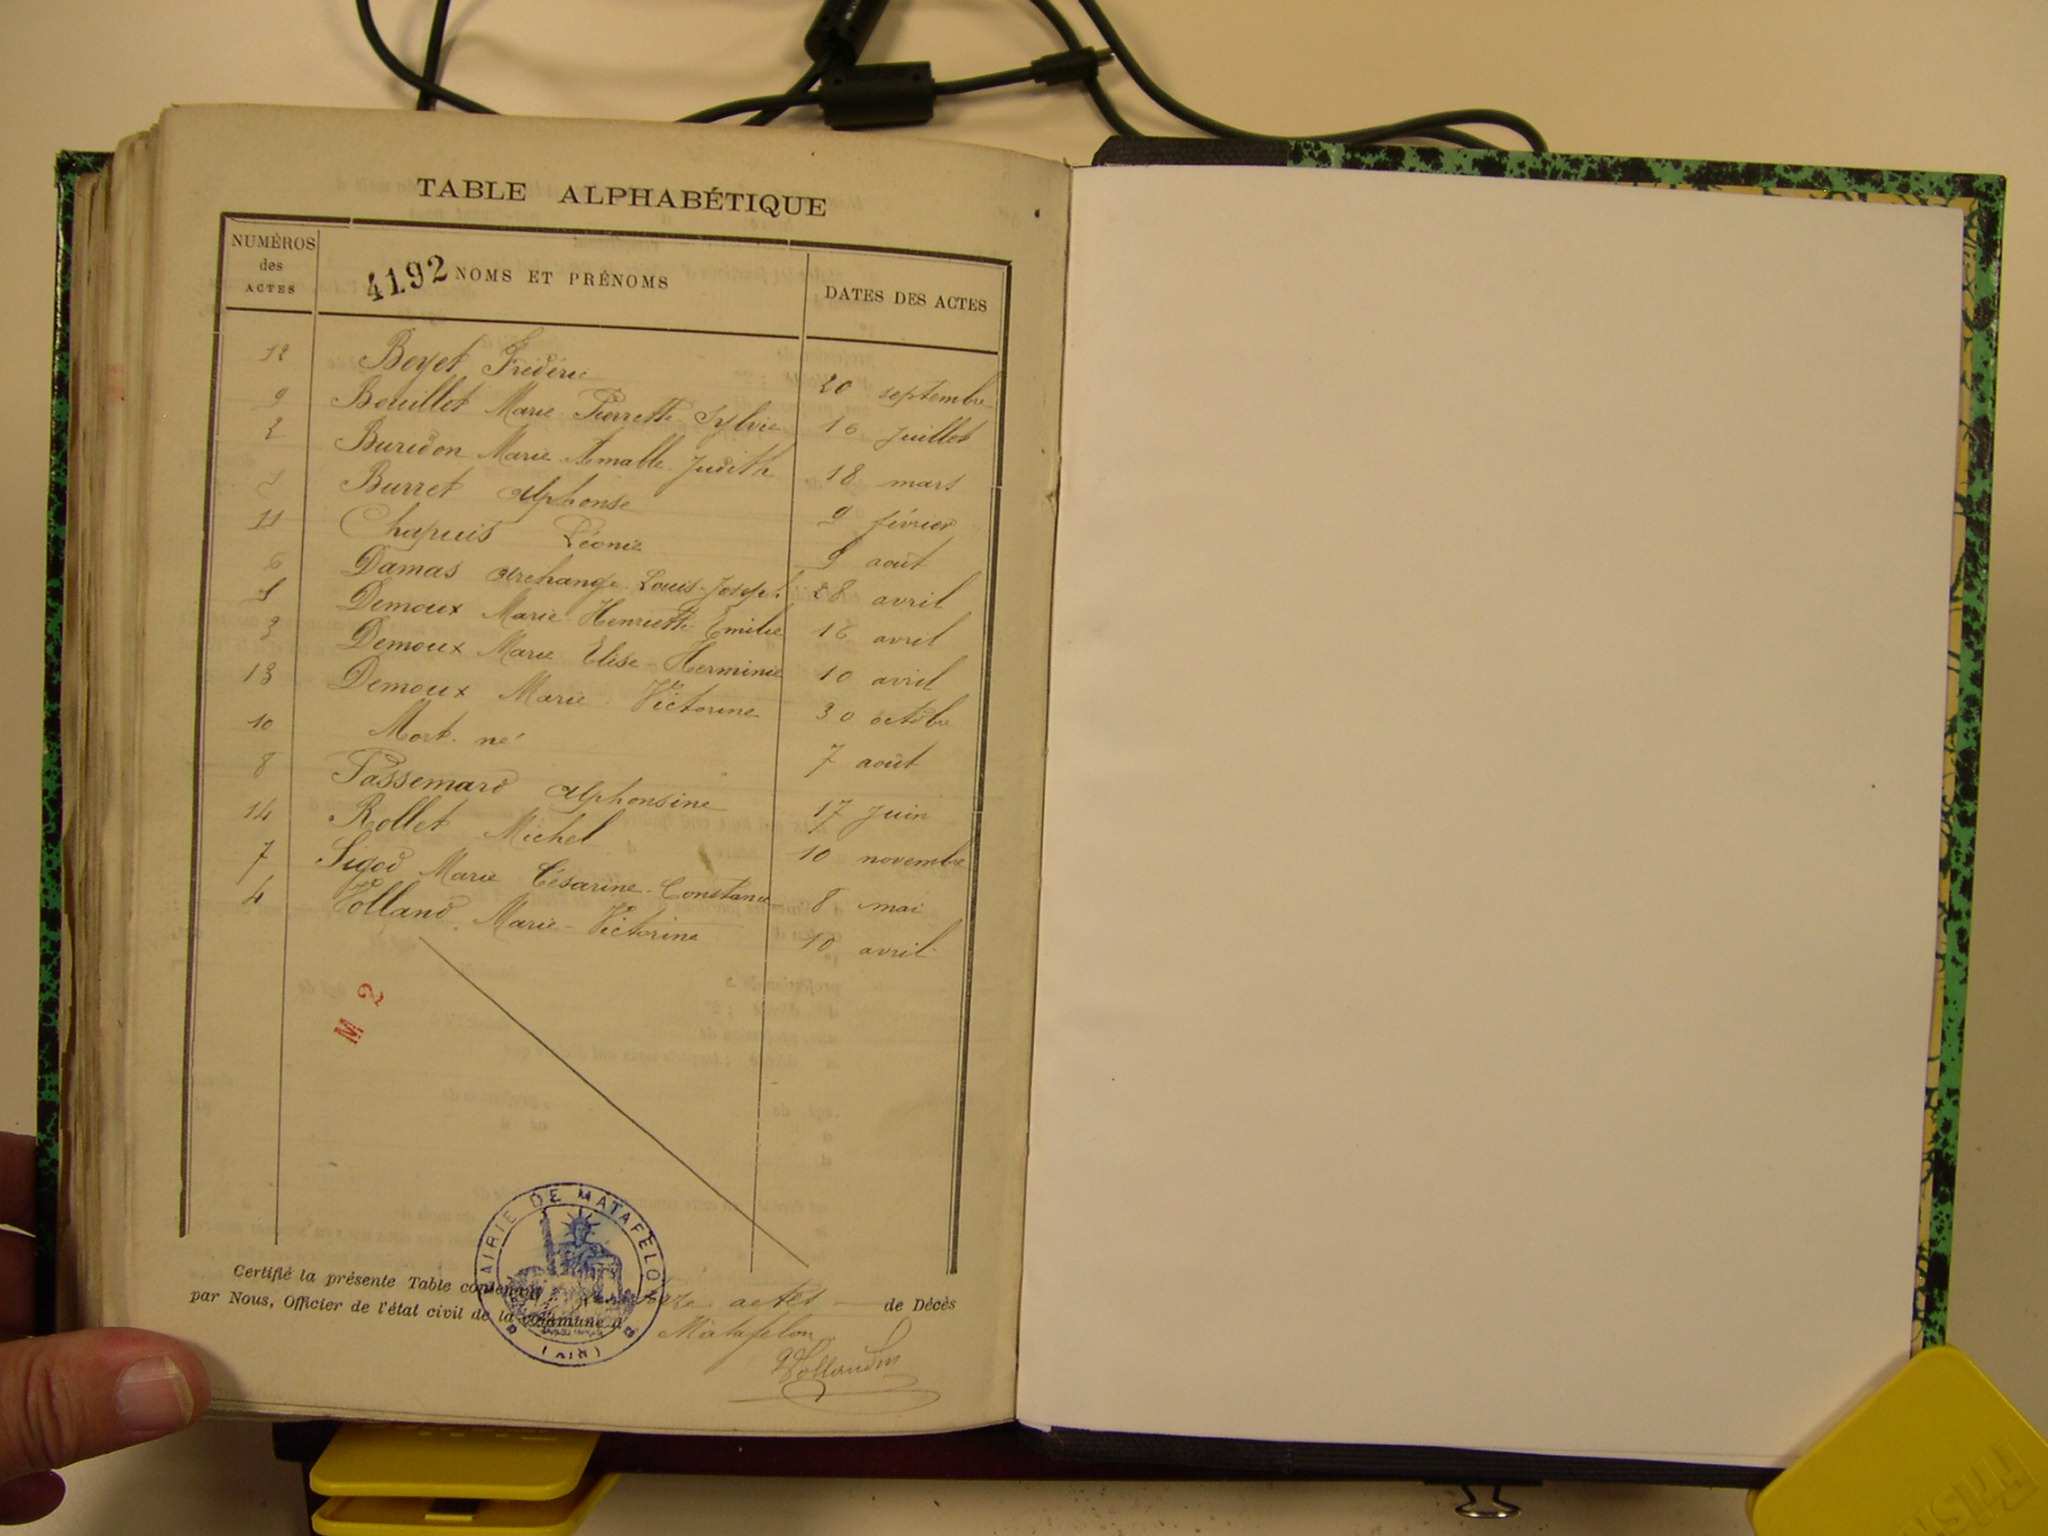 TABLE ALPHABÉTIQUE
NUMÉROS des ACTES
4192 NOMS ET PRÉNOMS
DATES DES ACTES
12 Boyet Frédéric 20 septembre
9 Bouillet Marie Pierrette Sylvie 16 juillet
2 Buridon Marie Amable Judith 18 mars
1 Burret Alphonse 9 février
11 Chapuis Léonie 9 août
6 Damas Archange Louis-Joseph 28 avril
5 Demoux Marie Henriette Emilie 16 avril
3 Demoux Marie Elise-Herminie 10 avril
13 Demoux Marie Victorine 30 octobre
10 Mort-né 7 août
8 Passemard Alphonsine 17 juin
14 Rollet Michel 10 novembre
7 Sigod Marie Césarine-Constance 8 mai
4 Volland Marie-Victorine 10 avril
M 2
MAIRIE DE MATAFELON
(AIN)
Certifié la présente Table contenant actes de Décès
par Nous, Officier de l'état civil de la commune d Matafelon